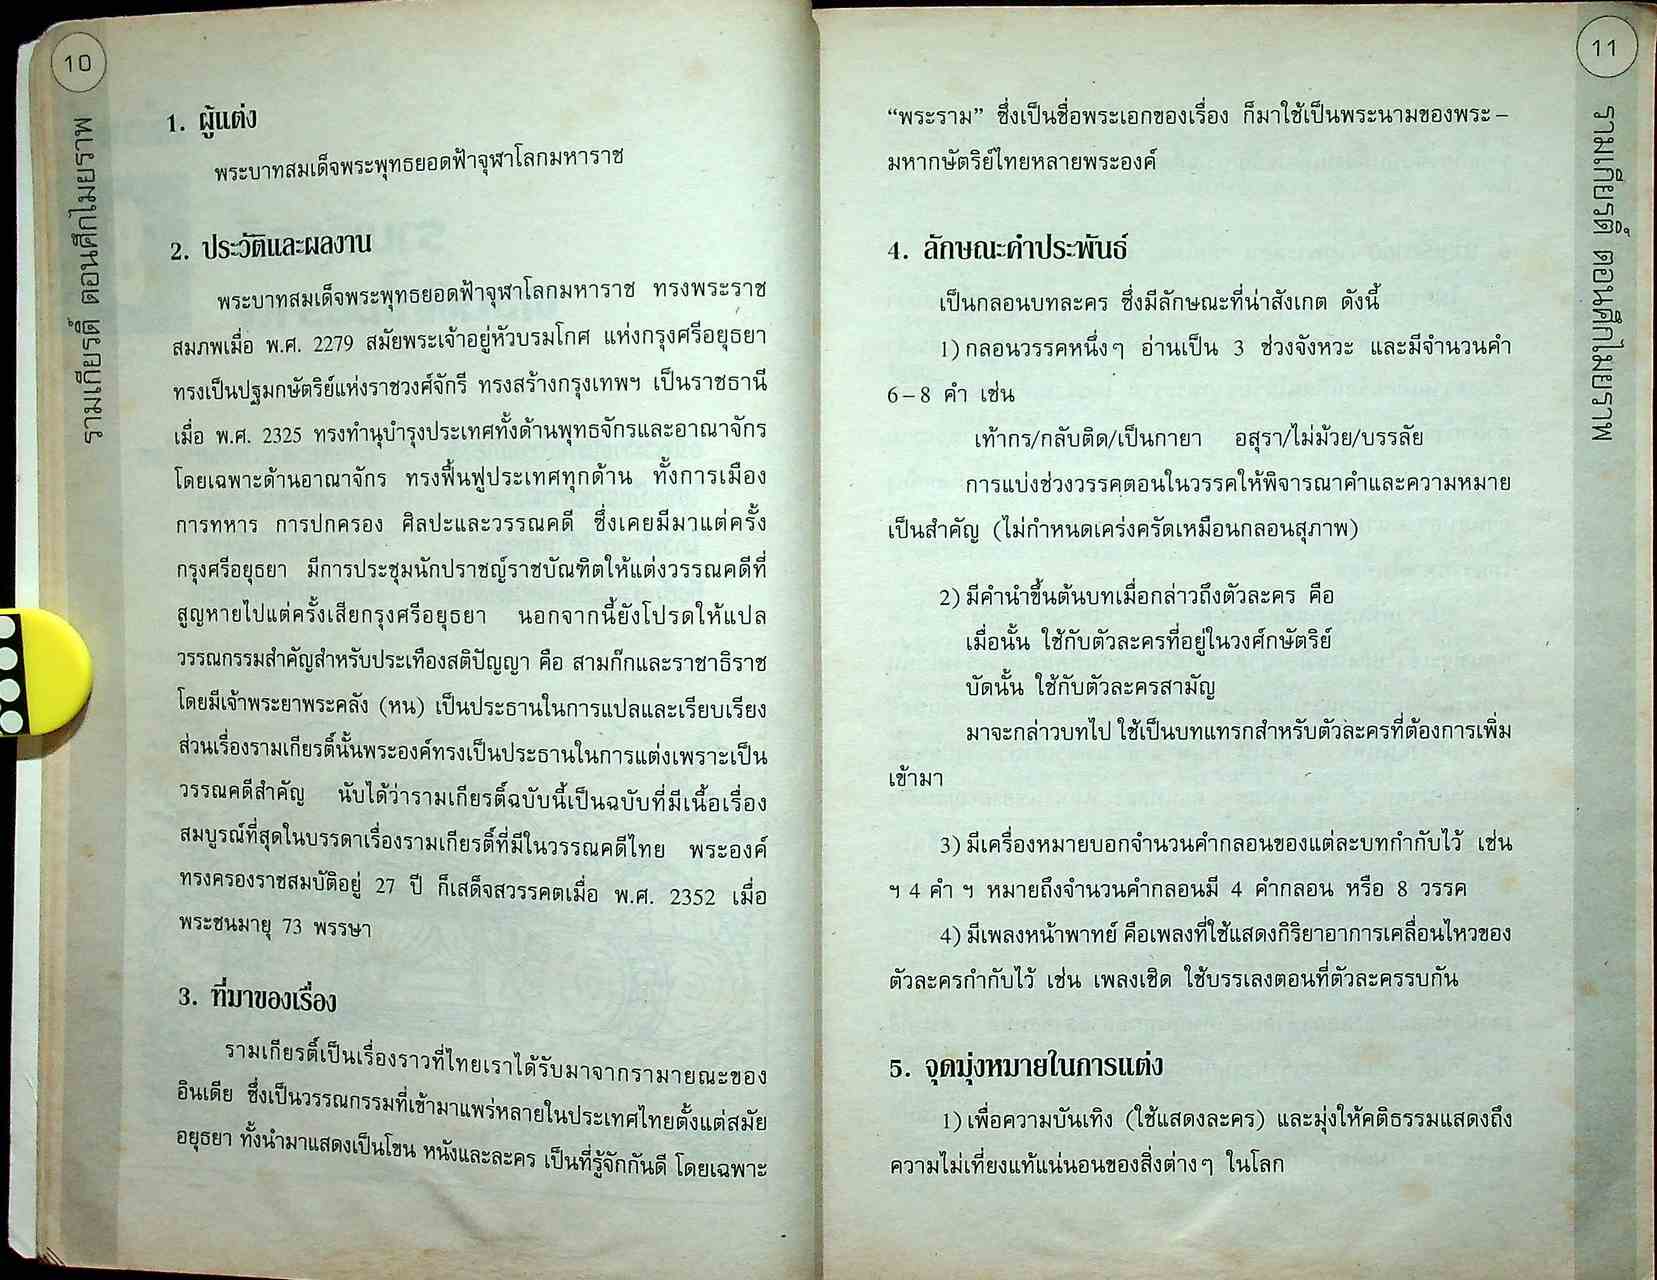 10
รามเกียรติ์ ตอนศึกไมยราพ
1. ผู้แต่ง
พระบาทสมเด็จพระพุทธยอดฟ้าจุฬาโลกมหาราช
2. ประวัติและผลงาน
พระบาทสมเด็จพระพุทธยอดฟ้าจุฬาโลกมหาราช ทรงพระราช
สมภพเมื่อ พ.ศ. 2279 สมัยพระเจ้าอยู่หัวบรมโกศ แห่งกรุงศรีอยุธยา
ทรงเป็นปฐมกษัตริย์แห่งราชวงศ์จักรี ทรงสร้างกรุงเทพฯ เป็นราชธานี
เมื่อ พ.ศ. 2325 ทรงทำนุบำรุงประเทศทั้งด้านพุทธจักรและอาณาจักร
โดยเฉพาะด้านอาณาจักร ทรงฟื้นฟูประเทศทุกด้าน ทั้งการเมือง
การทหาร การปกครอง ศิลปะและวรรณคดี ซึ่งเคยมีมาแต่ครั้ง
กรุงศรีอยุธยา มีการประชุมนักปราชญ์ราชบัณฑิตให้แต่งวรรณคดีที่
สูญหายไปแต่ครั้งเสียกรุงศรีอยุธยา นอกจากนี้ยังโปรดให้แปล
วรรณกรรมสำคัญสำหรับประเทืองสติปัญญา คือ สามก๊กและราชาธิราช
โดยมีเจ้าพระยาพระคลัง (หน) เป็นประธานในการแปลและเรียบเรียง
ส่วนเรื่องรามเกียรติ์นั้นพระองค์ทรงเป็นประธานในการแต่งเพราะเป็น
วรรณคดีสำคัญ นับได้ว่ารามเกียรติ์ฉบับนี้เป็นฉบับที่มีเนื้อเรื่อง
สมบูรณ์ที่สุดในบรรดาเรื่องรามเกียรติ์ที่มีในวรรณคดีไทย พระองค์
ทรงครองราชสมบัติอยู่ 27 ปี ก็เสด็จสวรรคตเมื่อ พ.ศ. 2352 เมื่อ
พระชนมายุ 73 พรรษา
3. ที่มาของเรื่อง
รามเกียรติ์เป็นเรื่องราวที่ไทยเราได้รับมาจากรามายณะของ
อินเดีย ซึ่งเป็นวรรณกรรมที่เข้ามาแพร่หลายในประเทศไทยตั้งแต่สมัย
อยุธยา ทั้งนำมาแสดงเป็นโขน หนังและละคร เป็นที่รู้จักกันดี โดยเฉพาะ
11
รามเกียรติ์ ตอนศึกไมยราพ
“พระราม” ซึ่งเป็นชื่อพระเอกของเรื่อง ก็มาใช้เป็นพระนามของพระ–
มหากษัตริย์ไทยหลายพระองค์
4. ลักษณะคำประพันธ์
เป็นกลอนบทละคร ซึ่งมีลักษณะที่น่าสังเกต ดังนี้
1) กลอนวรรคหนึ่งๆ อ่านเป็น 3 ช่วงจังหวะ และมีจำนวนคำ
6–8 คำ เช่น
เท้ากร/กลับติด/เป็นกายา อสุรา/ไม่ม้วย/บรรลัย
การแบ่งช่วงวรรคตอนในวรรคให้พิจารณาคำและความหมาย
เป็นสำคัญ (ไม่กำหนดเคร่งครัดเหมือนกลอนสุภาพ)
2) มีคำนำขึ้นต้นบทเมื่อกล่าวถึงตัวละคร คือ
เมื่อนั้น ใช้กับตัวละครที่อยู่ในวงศ์กษัตริย์
บัดนั้น ใช้กับตัวละครสามัญ
มาจะกล่าวบทไป ใช้เป็นบทแทรกสำหรับตัวละครที่ต้องการเพิ่ม
เข้ามา
3) มีเครื่องหมายบอกจำนวนคำกลอนของแต่ละบทกำกับไว้ เช่น
ฯ 4 คำ ฯ หมายถึงจำนวนคำกลอนมี 4 คำกลอน หรือ 8 วรรค
4) มีเพลงหน้าพาทย์ คือเพลงที่ใช้แสดงกิริยาอาการเคลื่อนไหวของ
ตัวละครกำกับไว้ เช่น เพลงเชิด ใช้บรรเลงตอนที่ตัวละครรบกัน
5. จุดมุ่งหมายในการแต่ง
1) เพื่อความบันเทิง (ใช้แสดงละคร) และมุ่งให้คติธรรมแสดงถึง
ความไม่เที่ยงแท้แน่นอนของสิ่งต่างๆ ในโลก